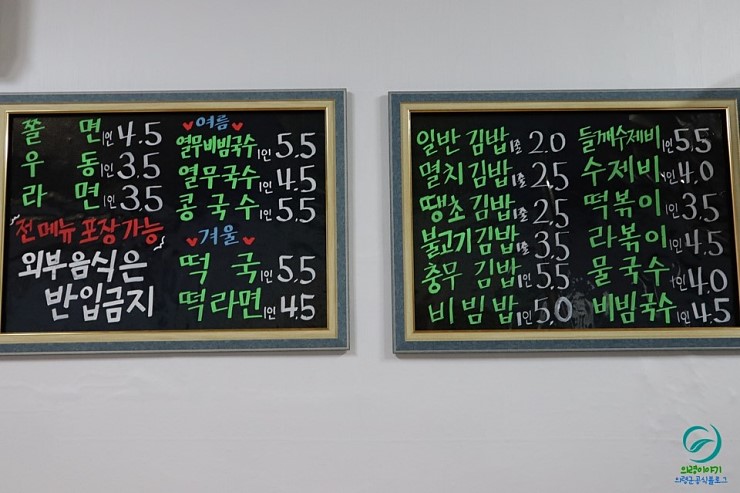 쫄면 1인 4.5
우동 1인 3.5
라면 1인 3.5
전메뉴 포장가능
외부음식은
반입금지
♥여름♥
열무비빔국수 1인 5.5
열무국수 1인 4.5
콩국수 1인 5.5
♥겨울♥
떡국 1인 5.5
떡라면 1인 4.5
일반김밥 1줄 2.0
멸치김밥 1줄 2.5
땡초김밥 1줄 2.5
불고기김밥 1줄 3.5
충무김밥 1인 5.5
비빔밥 1인 5.0
들깨수제비 1인 5.5
수제비 1인 4.0
떡볶이 1인 3.5
라볶이 1인 4.5
물국수 1인 4.0
비빔국수 1인 4.5
의령이야기
의령군공식블로그